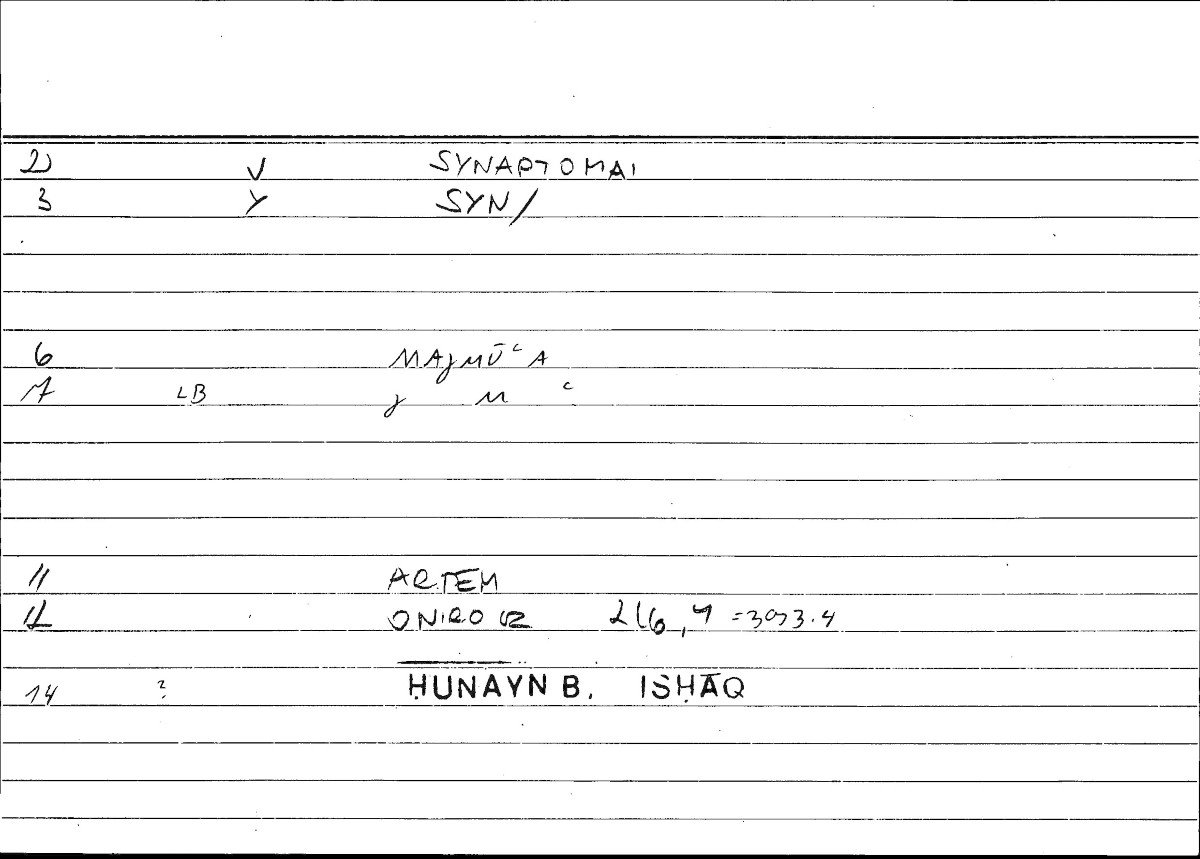 2) V SYNAPTOMAI
3 Y SYN/
6 MAJMŪᶜA
7 LB J M ᶜ
11 ARTEM
12 ONIROCR 216,4 =393.4
14 ? ḤUNAYN B. ISḤĀQ